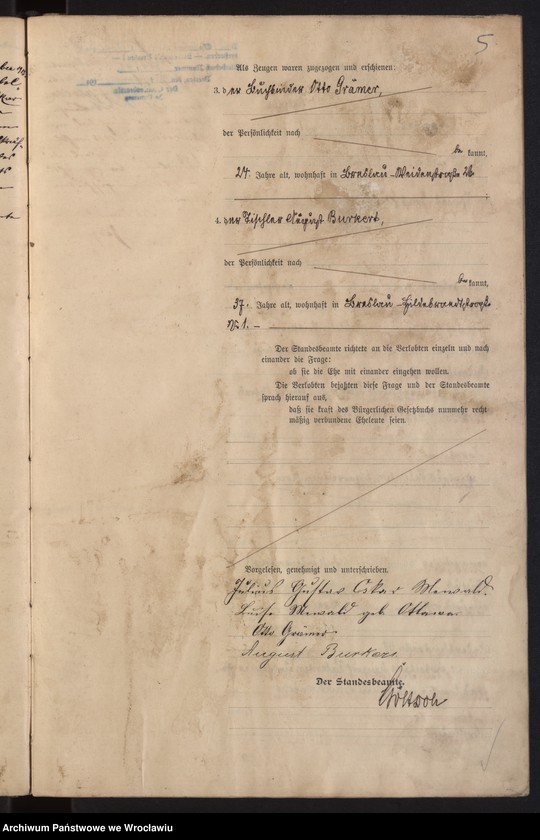 5
Als Zeugen waren zugezogen und erschienen:
3. der Buchbinder Otto Grämer,
der Persönlichkeit nach
be kannt,
24 Jahre alt, wohnhaft in Breslau Weidenstraße
4. der Tischler August Burkert,
der Persönlichkeit nach
be kannt,
37 Jahre alt, wohnhaft in Breslau Hildebrandtstraße
No 1. —
Der Standesbeamte richtete an die Verlobten einzeln und nach
einander die Frage:
ob sie die Ehe mit einander eingehen wollen.
Die Verlobten bejahten diese Frage und der Standesbeamte
sprach hierauf aus,
daß sie kraft des Bürgerlichen Gesetzbuchs nunmehr recht
mäßig verbundene Eheleute seien.
Vorgelesen, genehmigt und unterschrieben.
Julius Gustav Oskar Mewald.
Luise Mewald geb. Ottawa
Otto Grämer
August Burkert
Der Standesbeamte.
Archiwum Państwowe we Wrocławiu